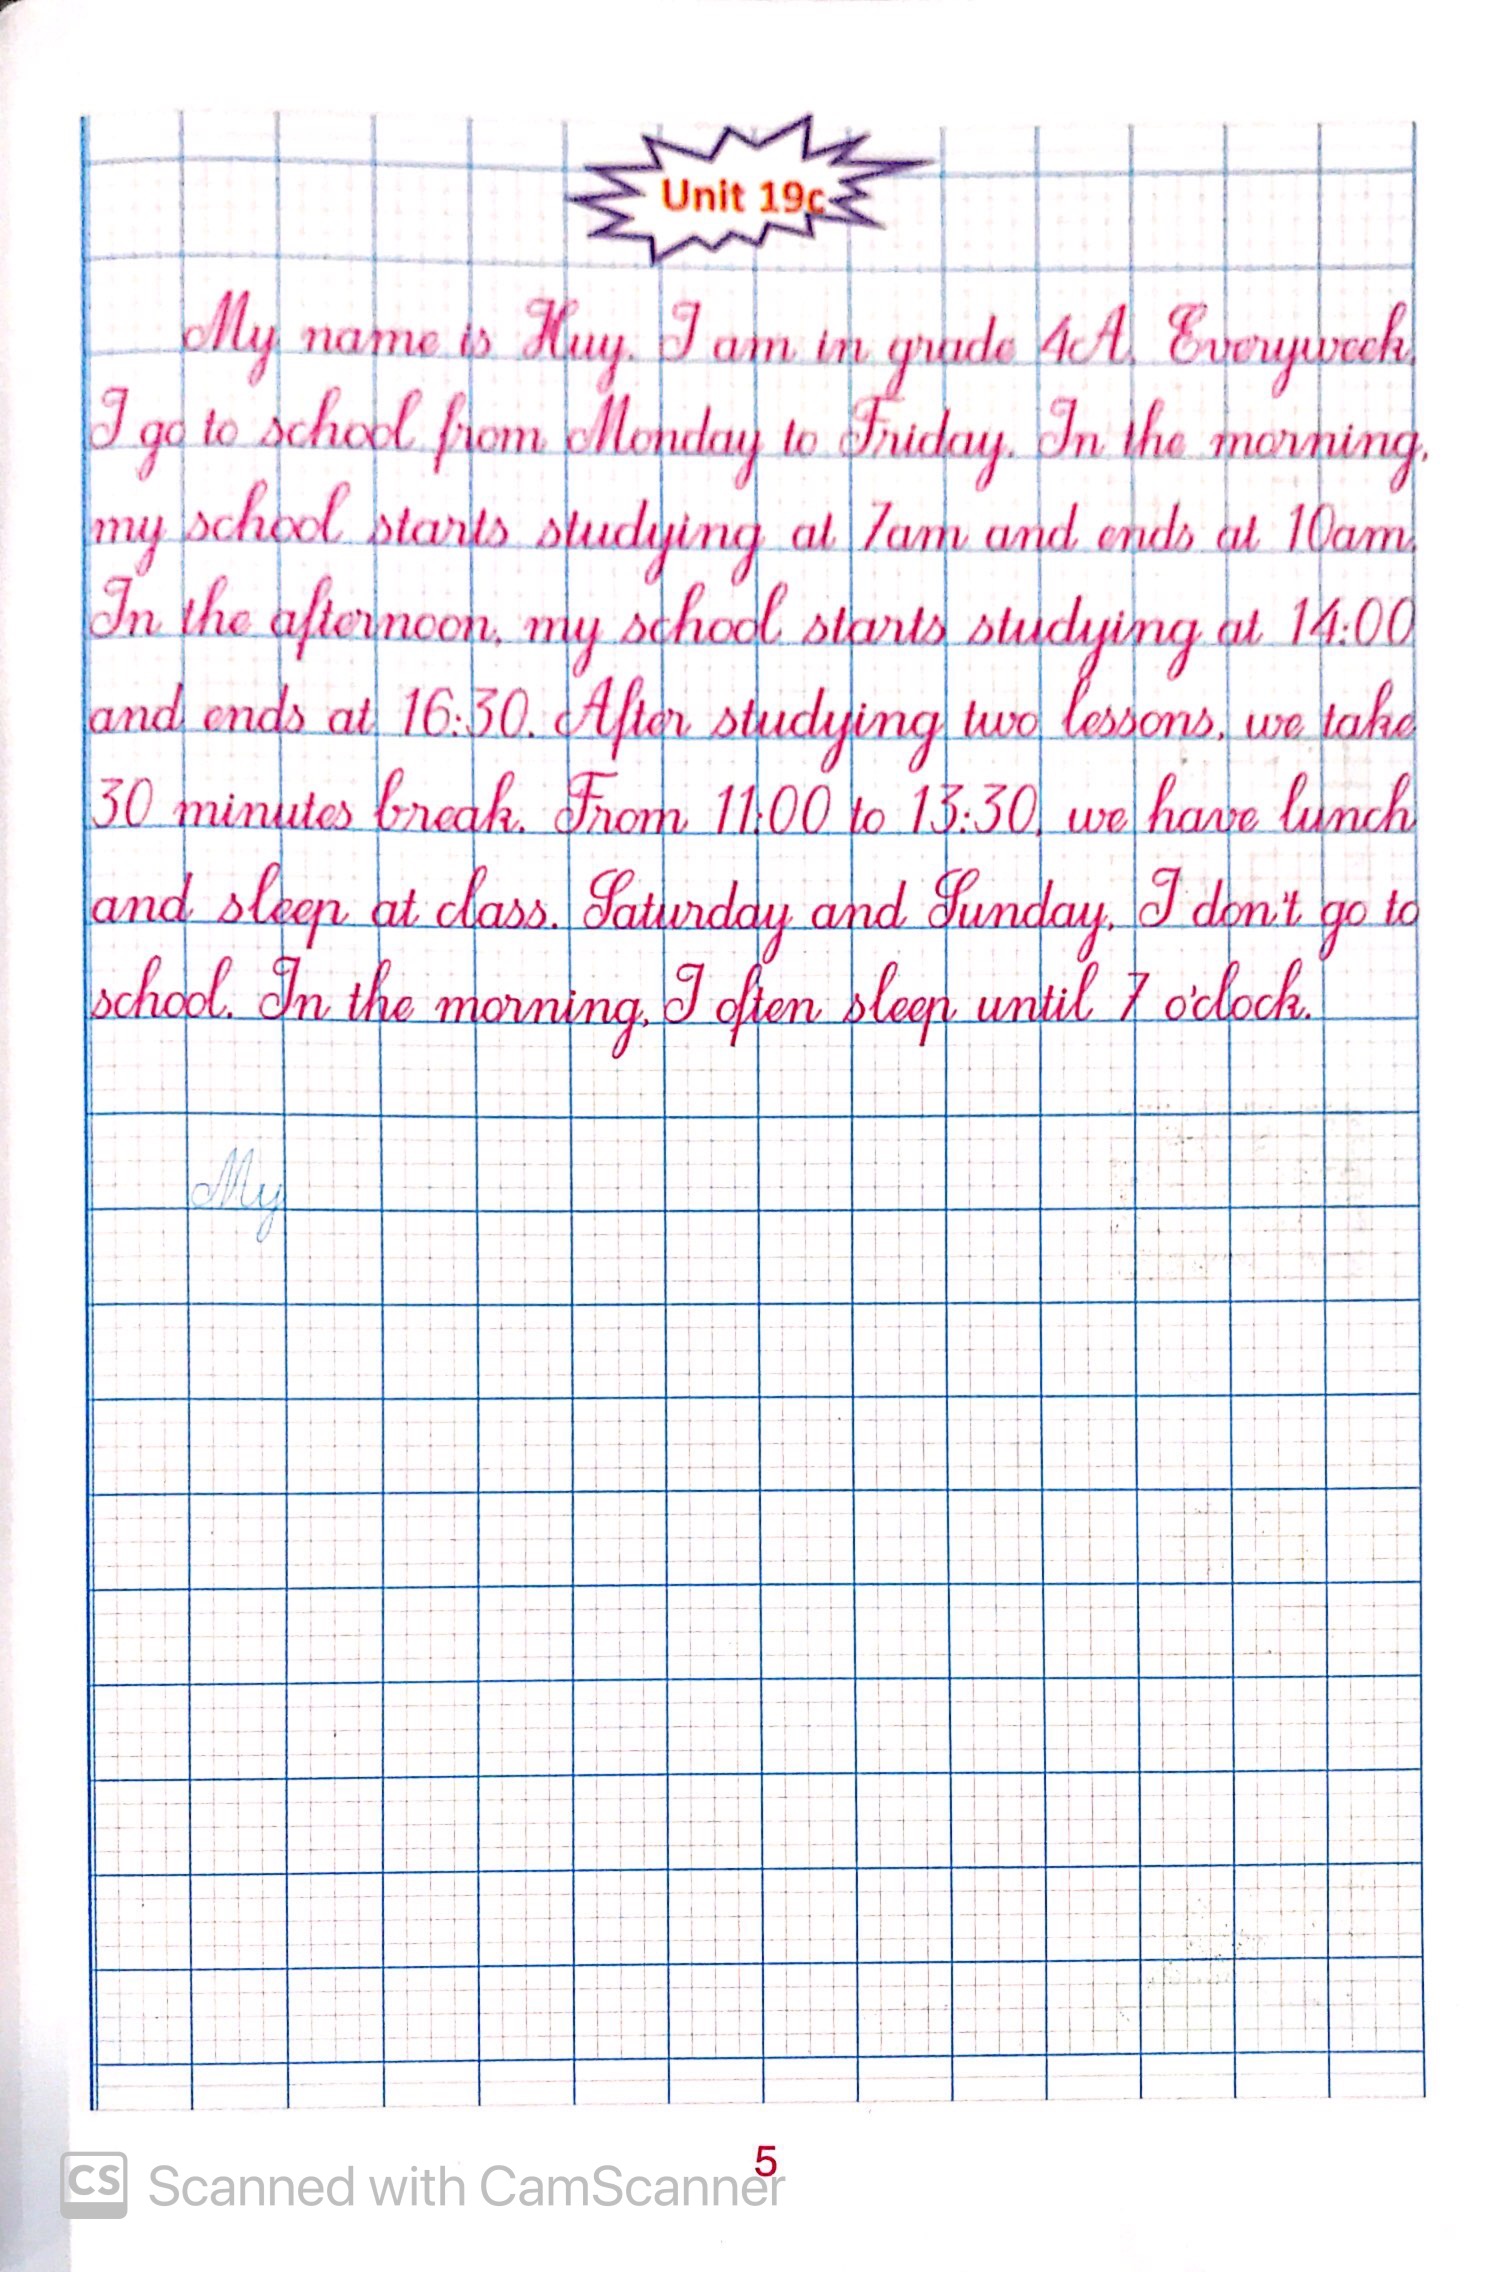 Unit 19c
My name is Huy. I am in grade 4A. Everyweek,
I go to school from Monday to Friday. In the morning,
my school starts studying at 7am and ends at 10am.
In the afternoon, my school starts studying at 14:00
and ends at 16:30. After studying two lessons, we take
30 minutes break. From 11:00 to 13:30, we have lunch
and sleep at class. Saturday and Sunday, I don't go to
school. In the morning, I often sleep until 7 o'clock.
My
5
CS Scanned with CamScanner